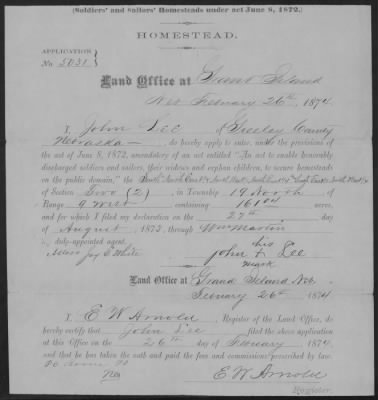 (Soldiers' and Sailors' Homesteads under act June 8, 1872.)
HOMESTEAD.
APPLICATION
No. 5031
Land Office at Grand Island
Neb February 26th, 1874
I, John Lee of Greeley County
Nebraska do hereby apply to enter, under the provisions of
the act of June 8, 1872, amendatory of an act entitled "An act to enable honorably
discharged soldiers and sailors, their widows and orphan children, to secure homesteads
on the public domain," the
of Section Two (2), in Township 19 North of
Range 9 West containing acres,
and for which I filed my declaration on the 27th day
of August, 1873, through Wm Martin
duly-appointed agent
his
John + Lee
mark
Land Office at Grand Island Neb
February 26th 1874
I, E W Arnold, Register of the Land Office, do
hereby certify that John Lee filed the above application
at this Office on the 26th day of February 1874,
and that he has taken the oath and paid the fees and commissions prescribed by law.
E W Arnold
Register